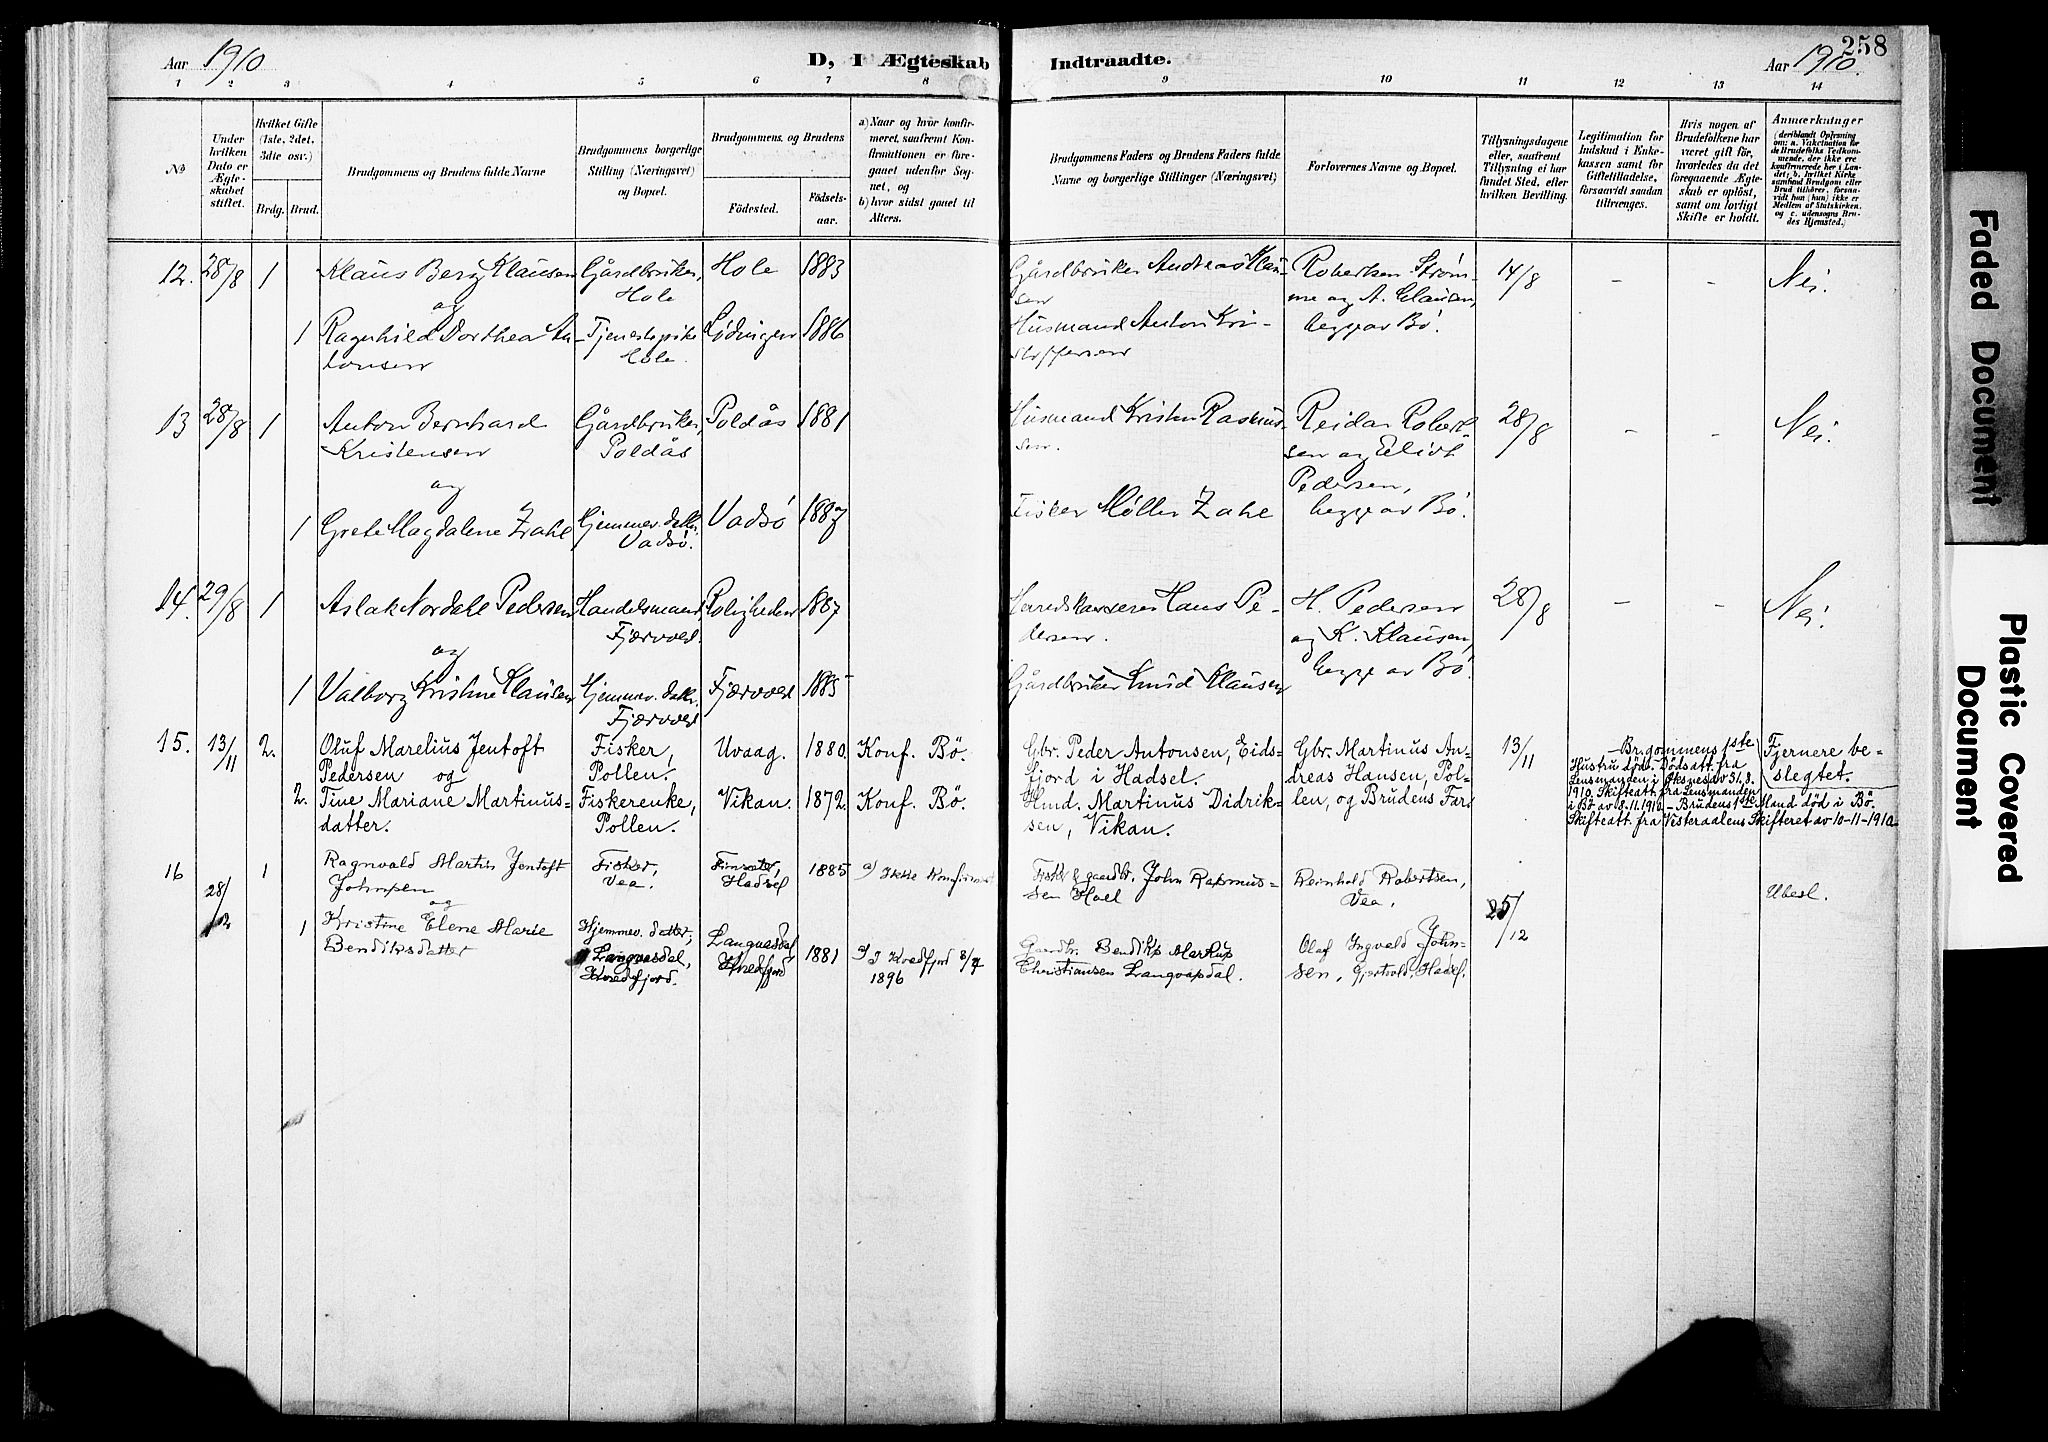 258
Aar 1910
D, I Ægteskab Indtraadte.
Aar 1910.
1 2 3 4 5 6 7 8 9 10 11 12 13 14
No
Under hvilken Dato er Ægteskabet stiftet.
Hvilket Gifte (1ste, 2det, 3die osv.)
Brdg. Brud.
Brudgommens og Brudens fulde Navne
Brudgommens borgerlige Stilling (Næringsvei) og Bopæl.
Brudgommens og Brudens
Födested.
Födselsaar.
a) Naar og hvor konfirmeret, saafremt Konfirmationen er foregaaet udenfor Sognet, og
b) hvor sidst gaaet til Alters.
Brudgommens Faders og Brudens Faders fulde Navne og borgerlige Stillinger (Næringsvei)
Forlovernes Navne og Bopæl.
Tillysningsdagene eller, saafremt Tillysning ei har fundet Sted, efter hvilken Bevilling.
Legitimation for Indskud i Enkekassen samt for Giftetilladelse, forsaavidt saadan tiltrænges.
Hvis nogen af Brudefolkene har været gift før, hvorledes da det foregaaende Ægteskab er oplöst, samt om lovligt Skifte er holdt.
Anmærkninger
12. 28/8 1 Klaus Berg Klausen Gårdbruker, Hole Hole 1883
og
1 Ragnhild Dorthea Antonsen Tjenestepike Hole. Lødingen 1886
Gårdbruker Andreas Klausen
Husmand Anton Kristoffersen
Robertsen Strømme og A. Clausen, begge av Bø.
14/8 - - Nei.
13 28/8 1 Anton Bernhard Kristensen Gårdbruker, Poldås Poldås 1881
og
1 Grete Magdalene Zahl Hjemmev. datter Vadsø. Vadsø 1887
Husmand Kristen Rasmussen.
Fisker Møller Zahl
Reidar Robertsen og Eliot Pedersen, begge av Bø.
28/8 - - Nei.
14. 29/8 1 Aslak Nordahl Pedersen Handelsmand, Fjærvoll 1887
og
1 Valborg Kristine Klausen Hjemmev. datter Fjærvoll Fjærvoll 1885
Herredskasserer Hans Pedersen.
Gårdbruker Knud Klausen
H. Pedersen og K. Klausen, begge av Bø.
28/8 - - Nei.
15. 13/11 2. Oluf Marelius Jentoft Pedersen og Fisker, Pollen. Uvaag. 1880. Konf. Bø.
2. Tine Mariane Martinusdatter. Fiskerenke, Pollen. Vikan. 1872. Konf. Bø.
Gbr. Peder Antonsen, Eidsfjord i Hadsel.
Hmd. Martinus Didriksen, Vikan.
Gbr. Martinus Andreas Hansen, Pollen, og Brudens Far
13/11
Brgommens 1ste
Hustru död. Dödsatt. fra
Lensmanden i Øksnes av 31.8.
1910. Skifteatt. fra Lensmanden
i Bø av 8.11.1910 - Brudens 1ste Mand död i Bø.
Skifteatt. fra Vesteraalens Skifteret av 10-11-1910
Fjernere beslegtet.
16 28/12 1 Ragnvald Martin Jentoft Johnsen Fisker, Vea. Hadsel 1885 a) Ikke konfirmert
og
1 Kristine Elene Marie Bendiksdatter Hjemmev. datter, Langvasdal, Kvedfjord. Langvasdal Kvedfjord 1881 a) I Kvedfjord 1896
Fisker & gaardbr. John Rasmussen Hoel
Gaardbr. Bendiks Markus Christiansen Langvasdal.
Reinhold Robertsen, Vea.
Olaf Ingvald Johnsen, Hadsel.
25/12
Ubesl.
Faded Document
Plastic Covered
Document